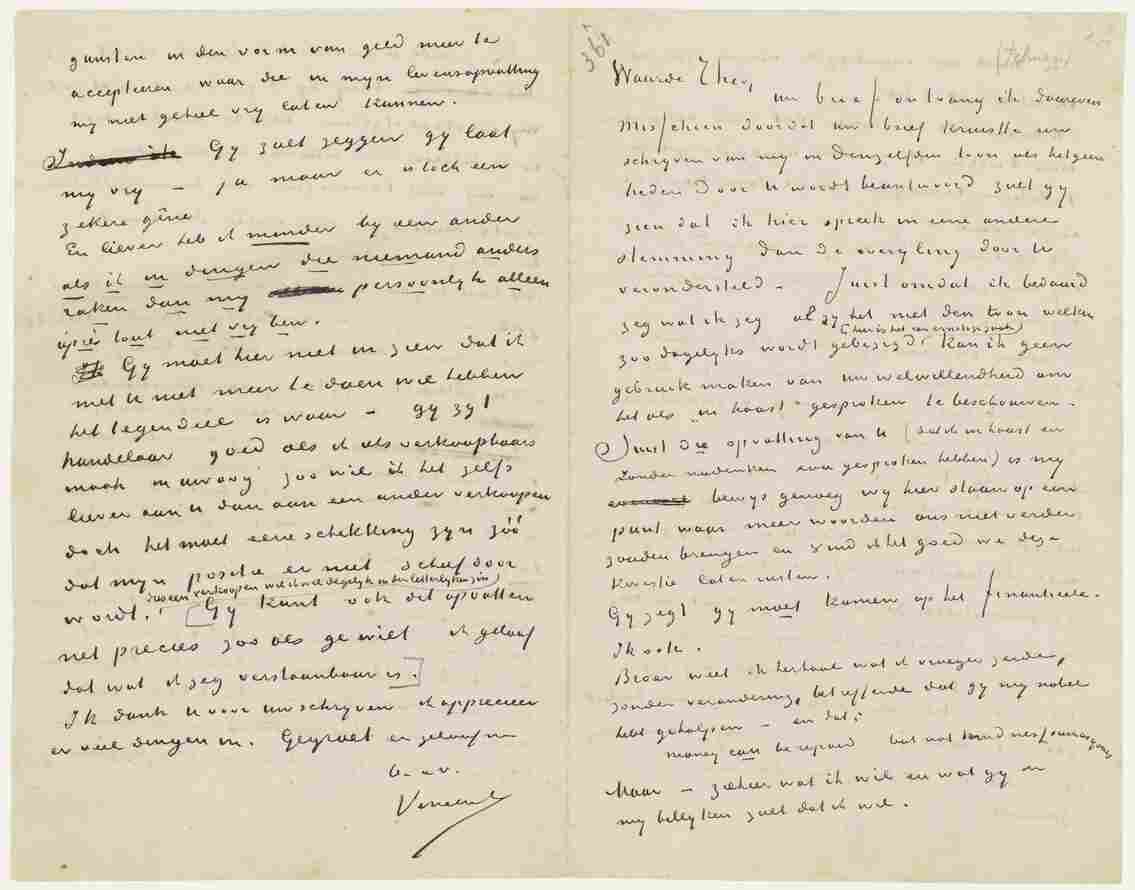 gunsten in den vorm van geld meer te
accepteeren waar die in mijn levensopvatting
mij niet geheel vrij laten kunnen.
Gij zult zeggen gij laat
mij vrij – ja maar er is toch een
zekere gêne
En liever heb ik minder bij een ander
als ik in dingen die niemand anders
raken dan mij persoonlijk alleen
après tout niet vrij ben.
Gij moet hier niet in zien dat ik
met U niet meer te doen wil hebben
het tegendeel is waar – gij zijt
handelaar goed als ik iets verkoopbaars
maak zoo wil ik het zelfs
liever aan U dan aan een ander verkoopen
doch het moet eene schikking zijn zóó
dat mijn positie er niet scheef door
(dus een verkoopen wil ik wel degelijk in den letterlijken zin)
wordt! [Gij kunt ook dit opvatten
net precies zoo als ge wilt ik geloof
dat wat ik zeg verstaanbaar is.]
Ik dank U voor Uw schrijven ik apprecieer
er veel dingen in. Gegroet en geloof me
t. à v.
Vincent
361
Waarde Theo,
Uw brief ontvang ik daareven
Misschien doordat Uw brief kruiste een
schrijven van mij in denzelfden toon als hetgeen
heden door U wordt beantwoord zult gij
zien dat ik hier spreek in eene andere
stemming dan de overijling door U
verondersteld – Juist omdat ik bedaard
zeg wat ik zeg al zij het met den toon welken
(hier is het van ernstige zaak)
zoo dagelijks wordt gebezigd! Kan ik geen
gebruik maken van uw welwillendheid om
het als "in haast" gesproken te beschouwen –
Juist die opvatting van U (dat ik in haast en
zonder nadenken zou gesproken hebben) is mij
bewijs genoeg wij hier staan op een
punt waar meer woorden ons niet verder
zouden brengen en vind ik het goed we deze
kwestie laten rusten.
Gij zegt gij moet komen op het financieele.
Ik ook.
Broer weet ik herhaal wat ik vroeger zeide,
zonder verandering, betreffende dat gij mij nobel
hebt geholpen – en dat;
money can be repaid but not kindness such as yours
Maar – ziehier wat ik wil en wat gij in
mij billijken zult dat ik wil.